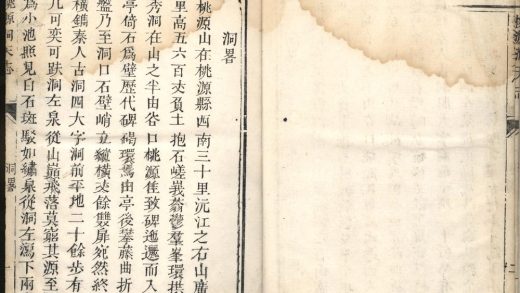 洞畧
桃源山在桃源縣西南三十里沅江之右山廣
里高五六百丈負土抱石嵯峩蓊鬱羣峯環拱
秀洞在山之半由谷口桃源佳致碑迤邐而入
亭倚石爲壁歷代碑碣環焉由亭後攀藤曲折
盤乃至洞口石壁峭立縱橫丈餘雙扉宛然終
橫鐫秦人古洞四大字洞前平地二十餘步有
几可奕可趺洞左泉從山巔飛落莫窮其源至
爲小池照見白石斑駁如繡泉從洞左瀉下兩
桃源洞天志
洞畧
一